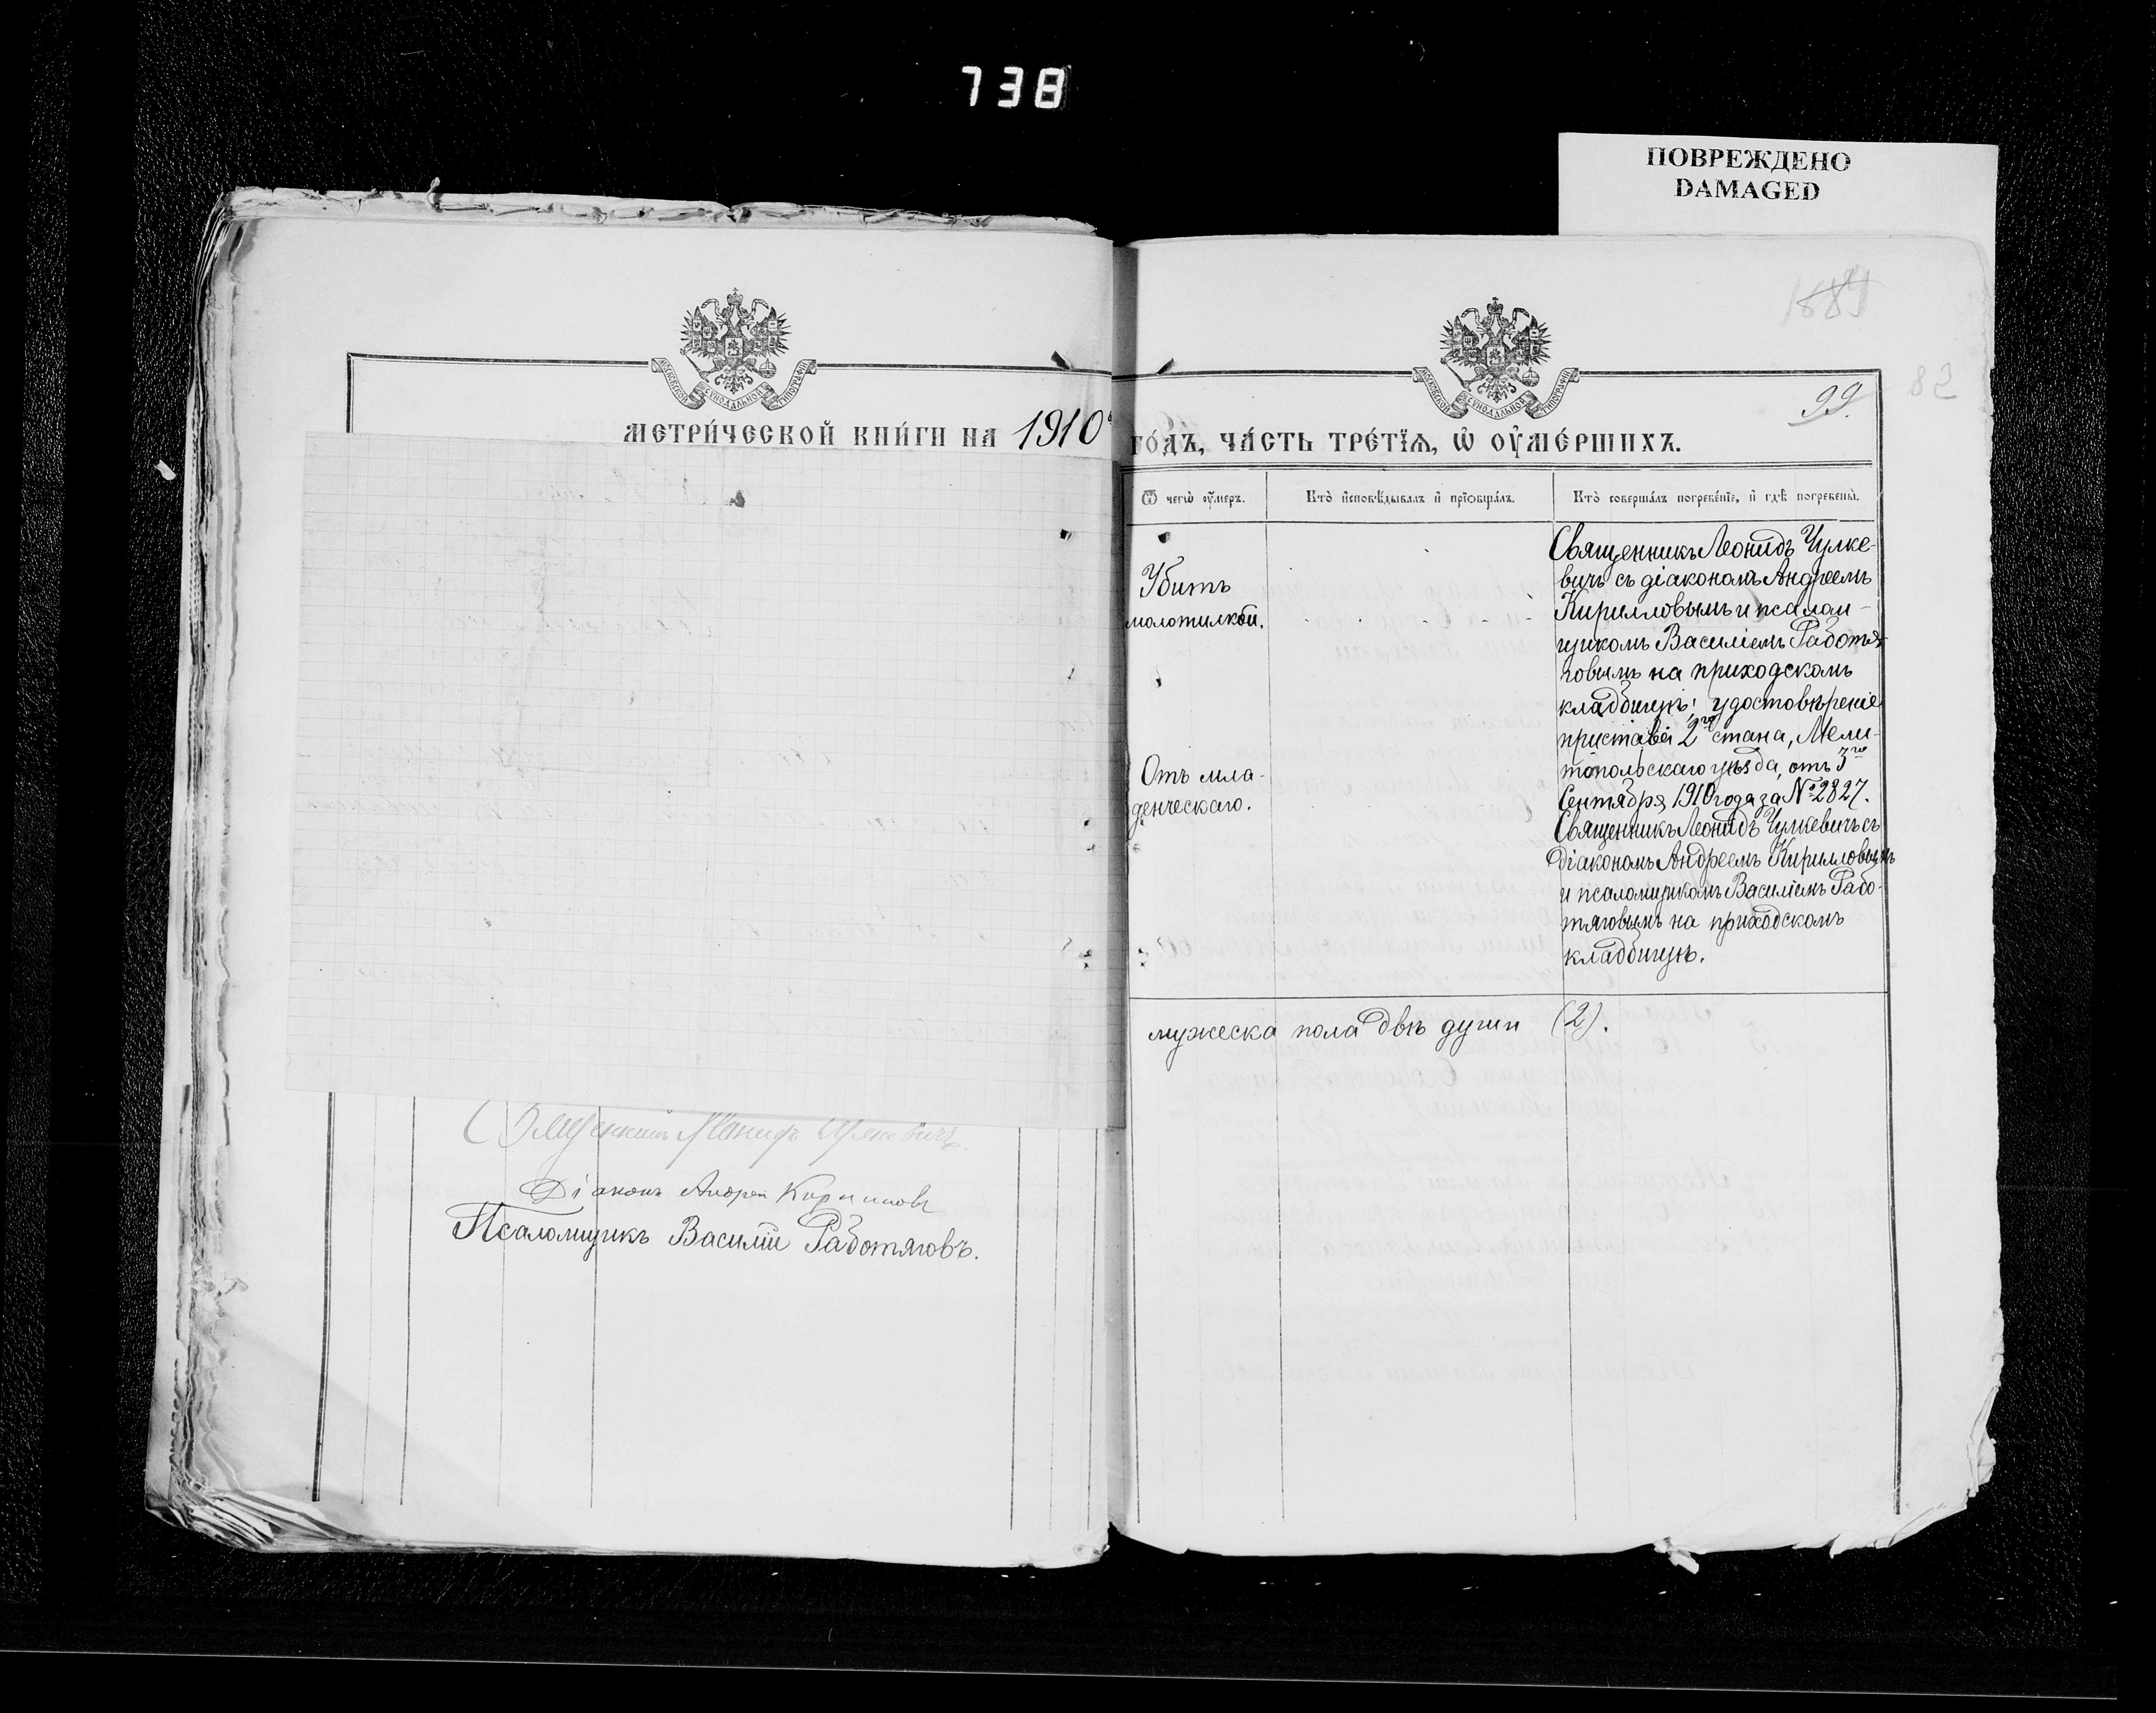 738
ПОВРЕЖДЕНО
DAMAGED
82
99.
МОСКОВСКОЙ СѴНОДАЛЬНОЙ ТИПОГРАФІИ
МОСКОВСКОЙ СѴНОДАЛЬНОЙ ТИПОГРАФІИ
МЕТРИ́ЧЕСКОЙ КНИ́ГИ НА 1910
ГО́ДЪ, ЧА́СТЬ ТРЕ́ТЇѦ, Ѡ҆ ОУ҆МЕ́РШИХЪ.
Ѿ чегѡ̀ оу҆́меръ.
Кто̀ и҆сповѣ́дывалъ и҆ прїѡбща́лъ.
Кто̀ соверша́лъ погребе́нїе, и҆ гдѣ̀ погребены̀.
Убитъ
молотилкой.
Священникъ Леонидъ Чулке-
вичъ съ діакономъ Андреемъ
Кирилловымъ и псалом-
щикомъ Василіемъ Работя-
говымъ на приходскомъ
кладбищѣ; удостовѣреніе
пристава 2го стана, Мели-
топольскаго уѣзда, отъ 3го
Сентября 1910 года за № 2827.
Отъ мла-
денческаго.
Священникъ Леонидъ Чулкевичъ съ
діакономъ Андреемъ Кирилловымъ
и псаломщикомъ Василіемъ Рабо-
тяговымъ на приходскомъ
кладбищѣ.
мужеска пола двѣ души (2).
Священникъ Леонидъ Чулкевичъ.
Діаконъ Андрей Кирилловъ
Псаломщикъ Василій Работяговъ.